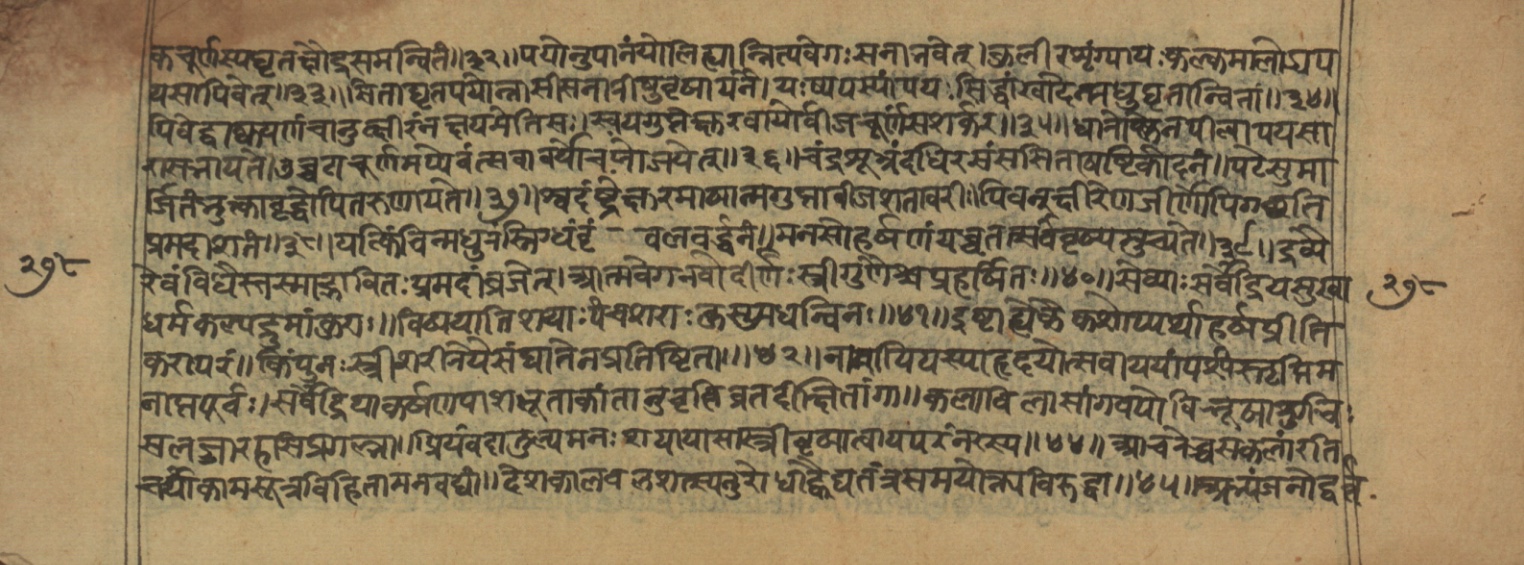 कचूर्णस्यघृतक्षौद्रसमन्वितं॥३२॥पयोनुपानंयोलिह्यान्नित्यवेगःसनानवेत्।कुलीरशृंग्यायःकल्कमालोड्यप
यसापिबेत्॥३३॥सिताघृतपयोन्नासीसनारीषुवृषायते।यःपयस्यांपयःसिद्धांखादेन्मधुघृतान्वितां॥३४॥
पिबेद्बाष्कयणंचानुक्षीरंनक्षयमेतिसः।स्वयंगुप्तेक्षुरकयोर्बीजचूर्णंसशर्करं॥३५॥धारोष्णेननरःपीत्वापयसा
रासभायते।उच्चटाचूर्णमप्येवंशतावर्याश्चयोजयेत्॥३६॥चंद्रशुभ्रंदधिसरंससिताषष्टिकौदनं॥पटेसुमा
र्जितंभुक्त्वावृद्धोपितरुणायते॥३७॥श्वदंष्ट्रेक्षुरमाषात्मगुप्ताबीजशतावरी॥पिबन्क्षीरेणजीर्णोपिगच्छति
प्रमदाशतं॥३८॥यत्किंचिन्मधुरंस्निग्धंबृं बलवर्द्धनं॥मनसोहर्षणंयच्चतत्सर्ववृष्यमुच्यते॥३९॥द्रव्यै
२७८
रेवंविधैस्तस्माद्भावितःप्रमदांव्रजेत्।आत्मवेगेनचोदीर्णःस्त्रीगुणैश्चप्रहर्षितः॥४०॥सेव्याःसर्वेंद्रियसुखा
२७८
धर्मकल्पद्रुमांकुराः॥विषयातिशयाःपंचशराःकुसुमधन्विनः॥४१॥इष्टाह्येकैकशोप्यर्थाहर्षप्रीति
कराःपरं॥किंपुनःस्त्रीशरीरेयेसंघातेनप्रतिष्टिताः॥४२॥नामापियस्याहृदयोत्सवाययांपश्यंस्तृप्तिम
नाप्तपूर्वः।सर्वेंद्रियाकर्षणपाशभूताकांतानुवृत्तिव्रतदीक्षितांगा॥कलाविलासांगवयोविभूषाशुचिः
सलज्जारहसिप्रगल्भा॥प्रियंवदातुल्यमनःशयायासास्त्रीवृषात्वायपरंनरस्य॥४४॥आचरेच्चसकलांरति
चर्यांकामसूत्रविहितामनवद्यां॥देशकालबलशत्त्यनुरोधाद्वैद्यतंत्रसमयोत्त्यविरुद्धां॥४५॥अभ्यंजनोद्वर्त